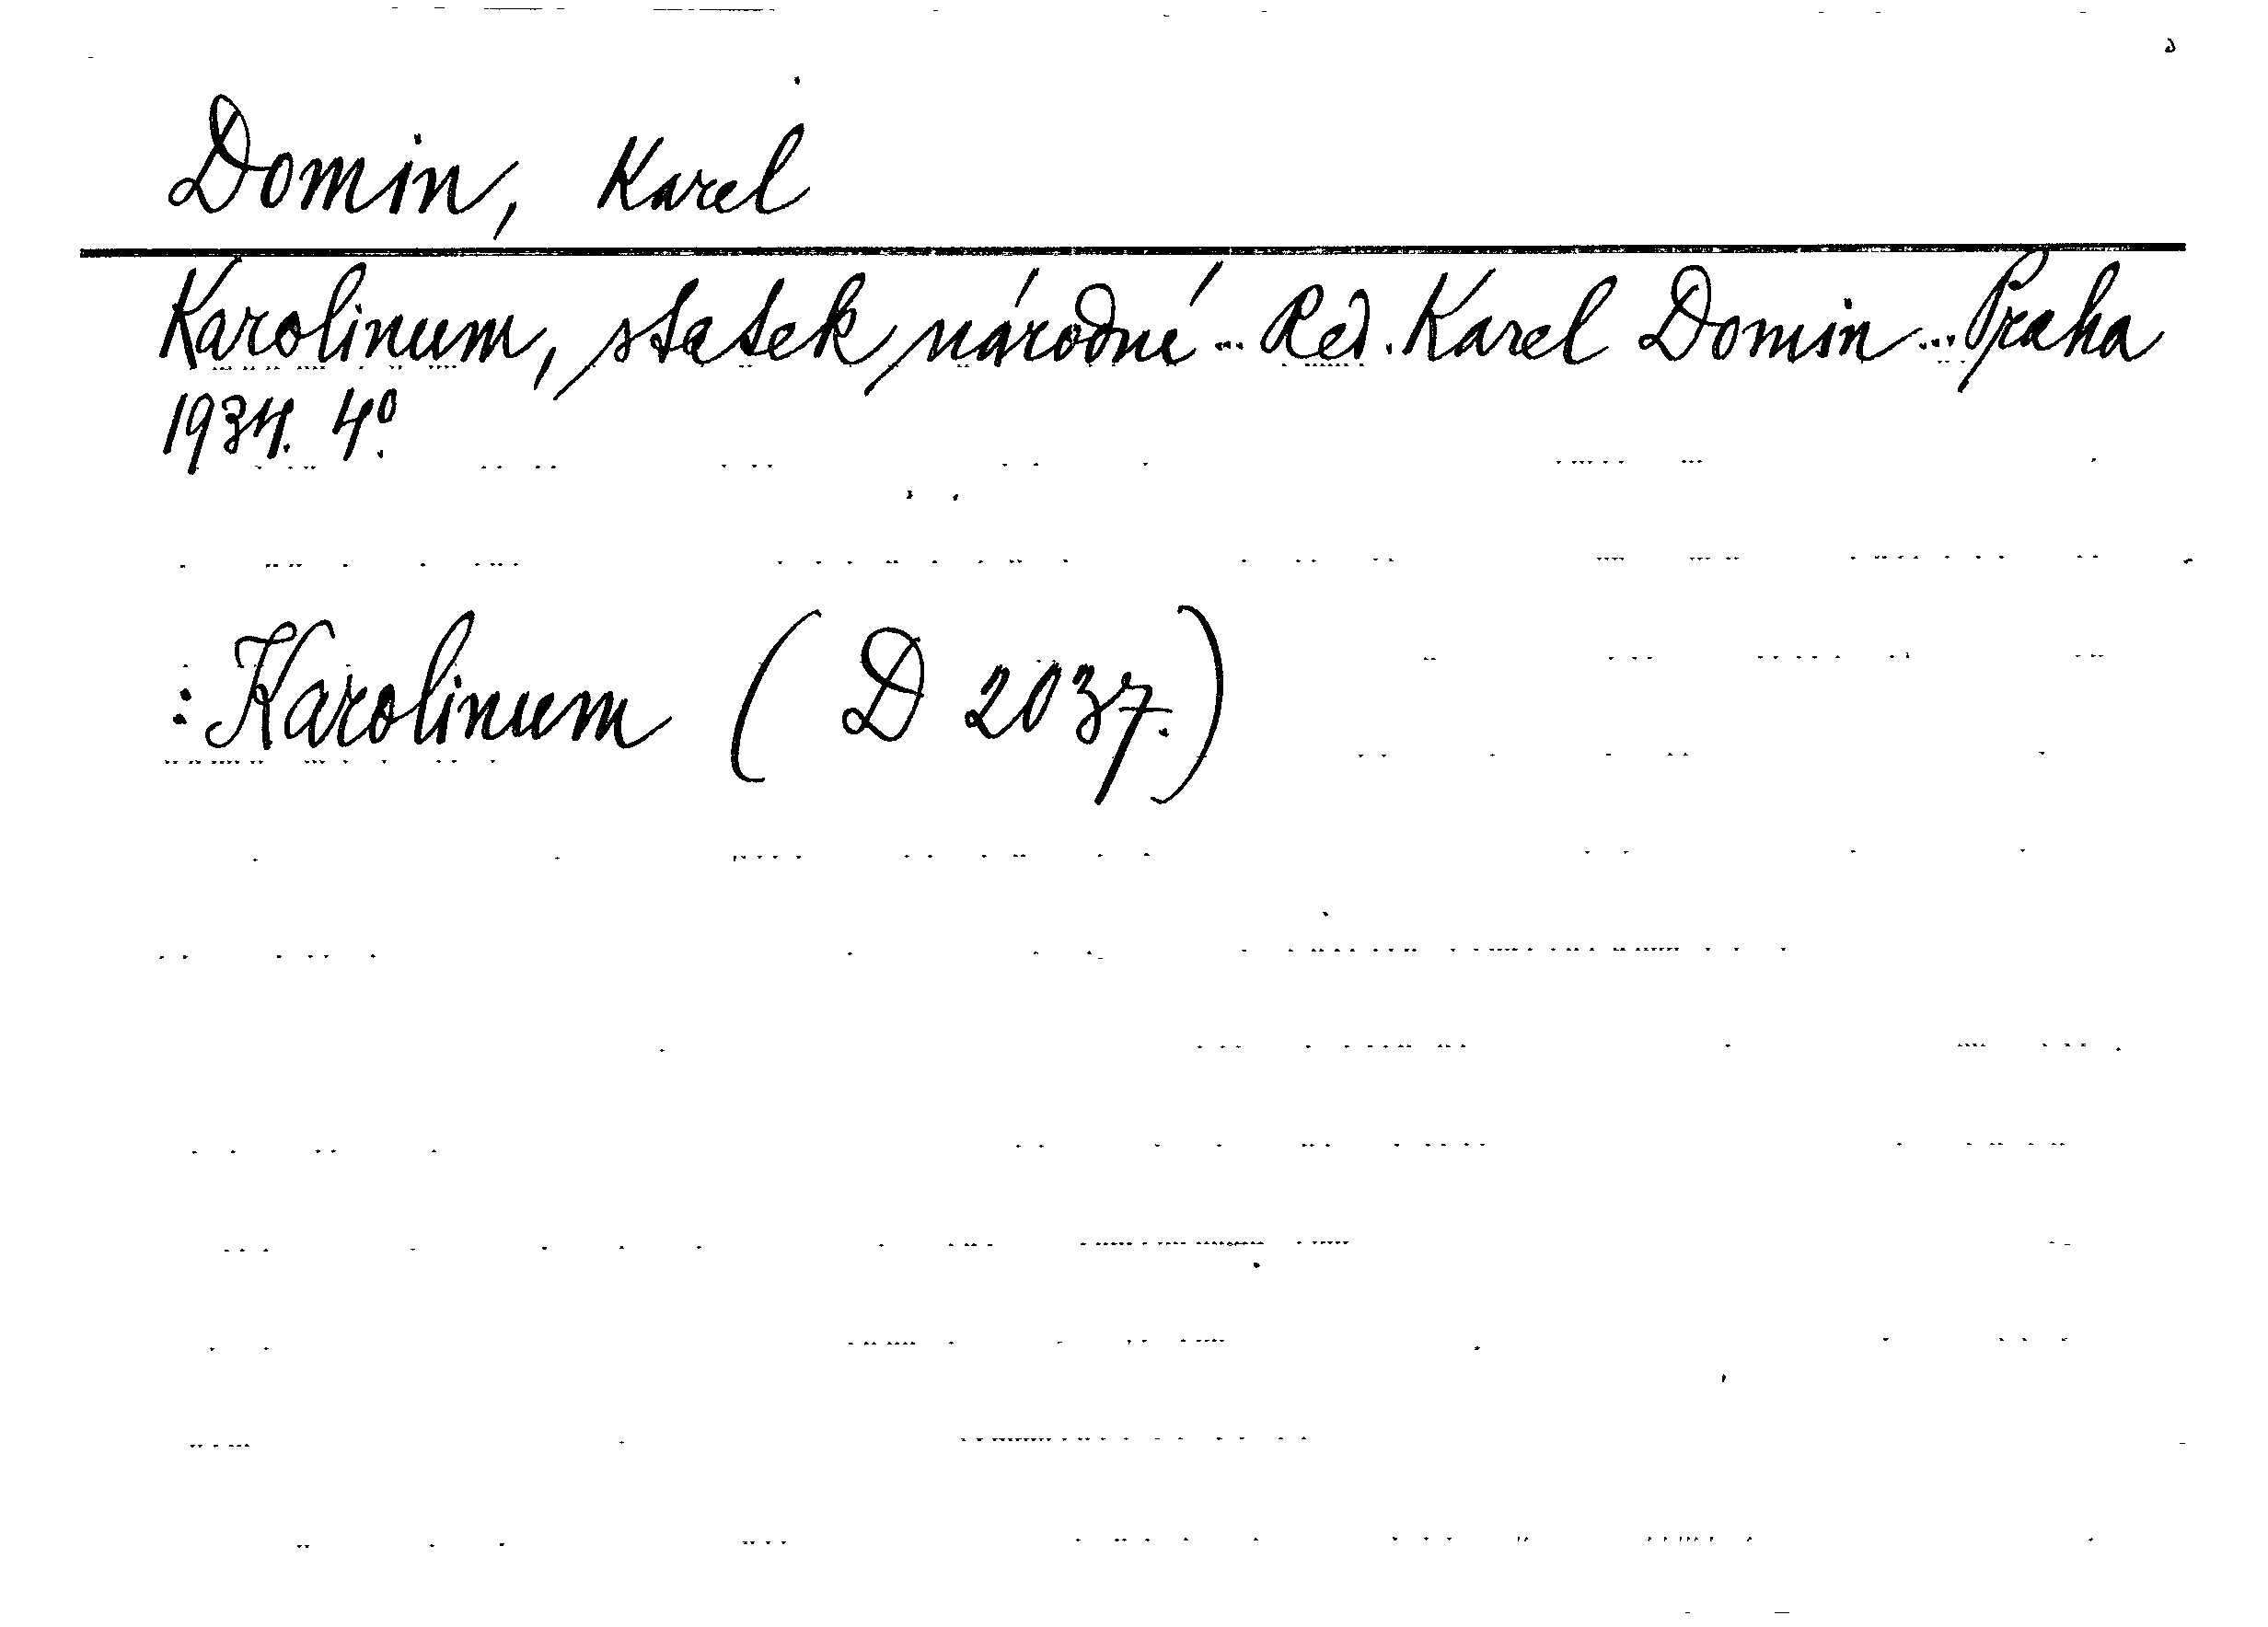 Domin, Karel
Karolinum, statek národní... Red. Karel Domin... Praha
1934. 4º.
: Karolinum ( D 2037. )